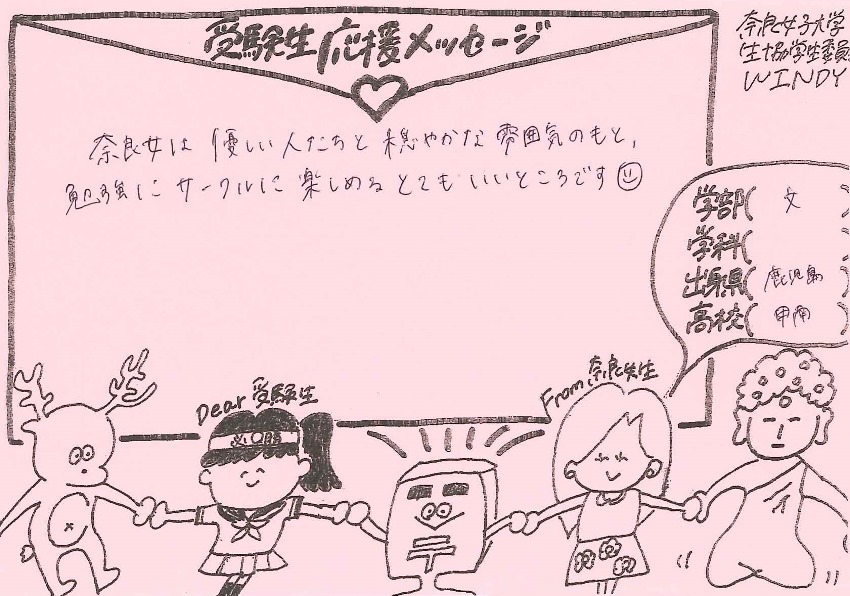 受験生応援メッセージ
奈良女子大学
生協学生委員
WINDY
奈良女は優しい人たちと穏やかな雰囲気のもと,
勉強にサークルに楽しめるとてもいいところです
学部( 文 )
学科(
出身県( 鹿児島 )
高校( 甲南 )
Dear 受験生
From 奈良女生
必勝
〒